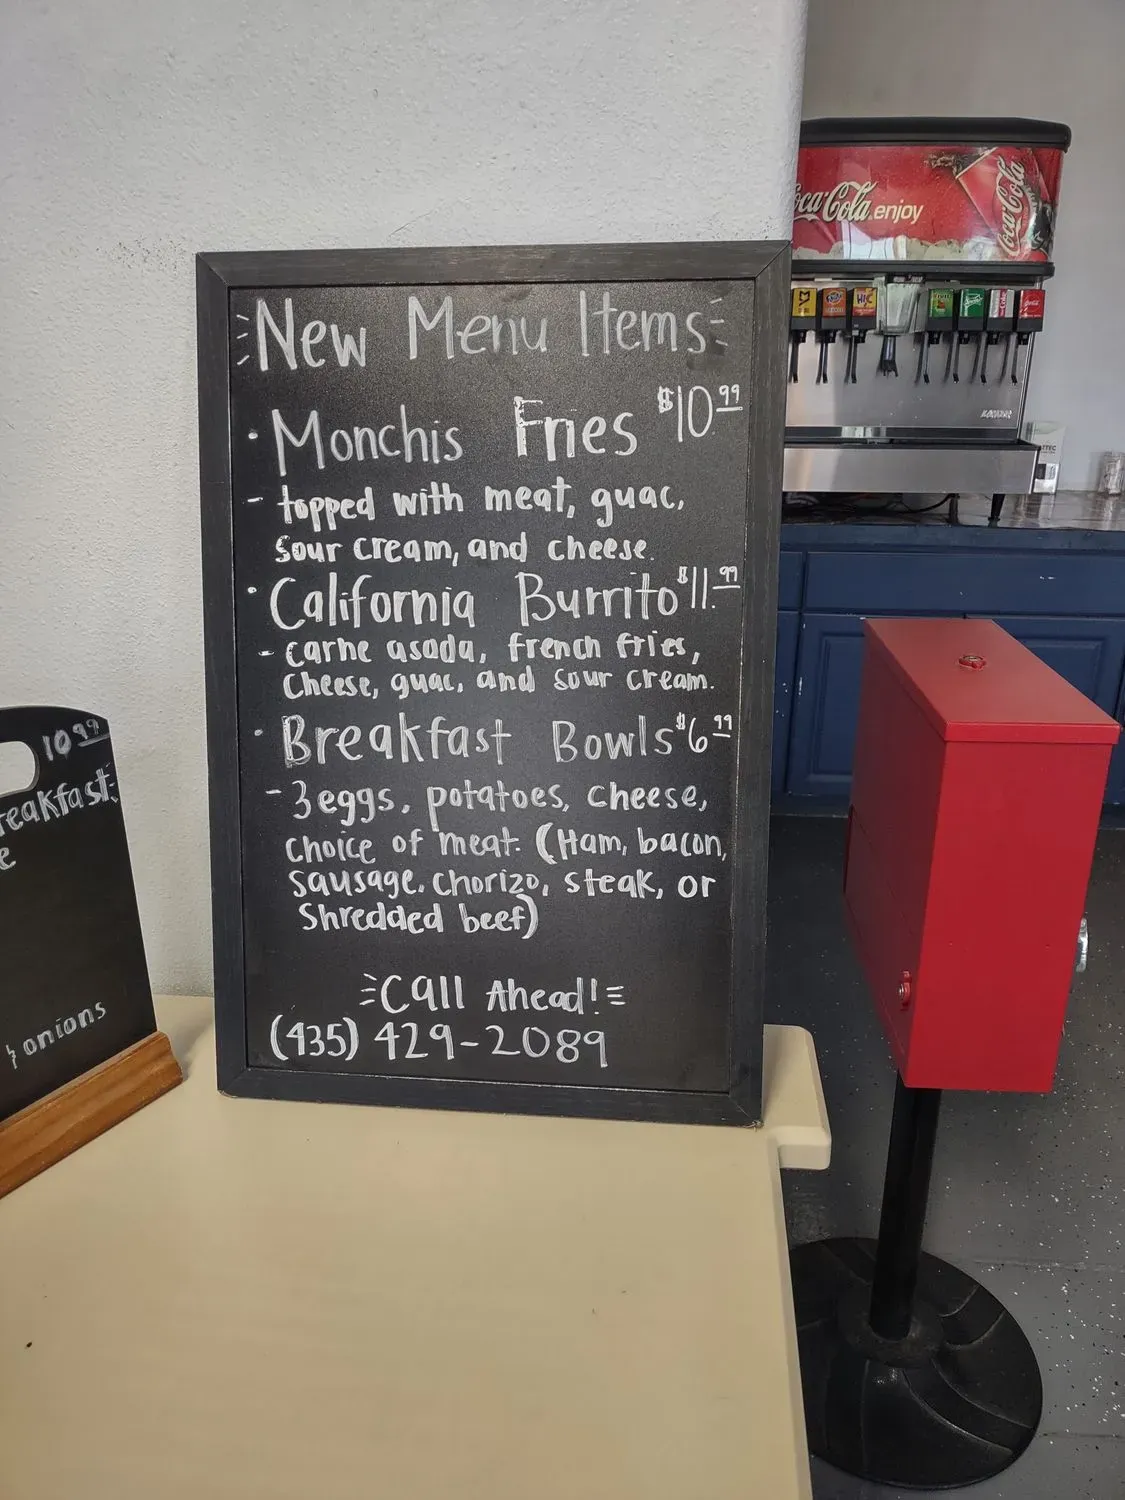 New Menu Items
· Monchis Fries $10.99
- topped with meat, guac,
sour cream, and cheese.
· California Burrito $11.99
- carne asada, french fries,
cheese, guac, and sour cream.
· Breakfast Bowls $6.99
- 3 eggs, potatoes, cheese,
choice of meat. (Ham, bacon,
sausage, chorizo, steak, or
shredded beef)
Call Ahead!
(435) 429-2089
10.99
reakfast
e
onions
Coca-Cola enjoy
Coca-Cola